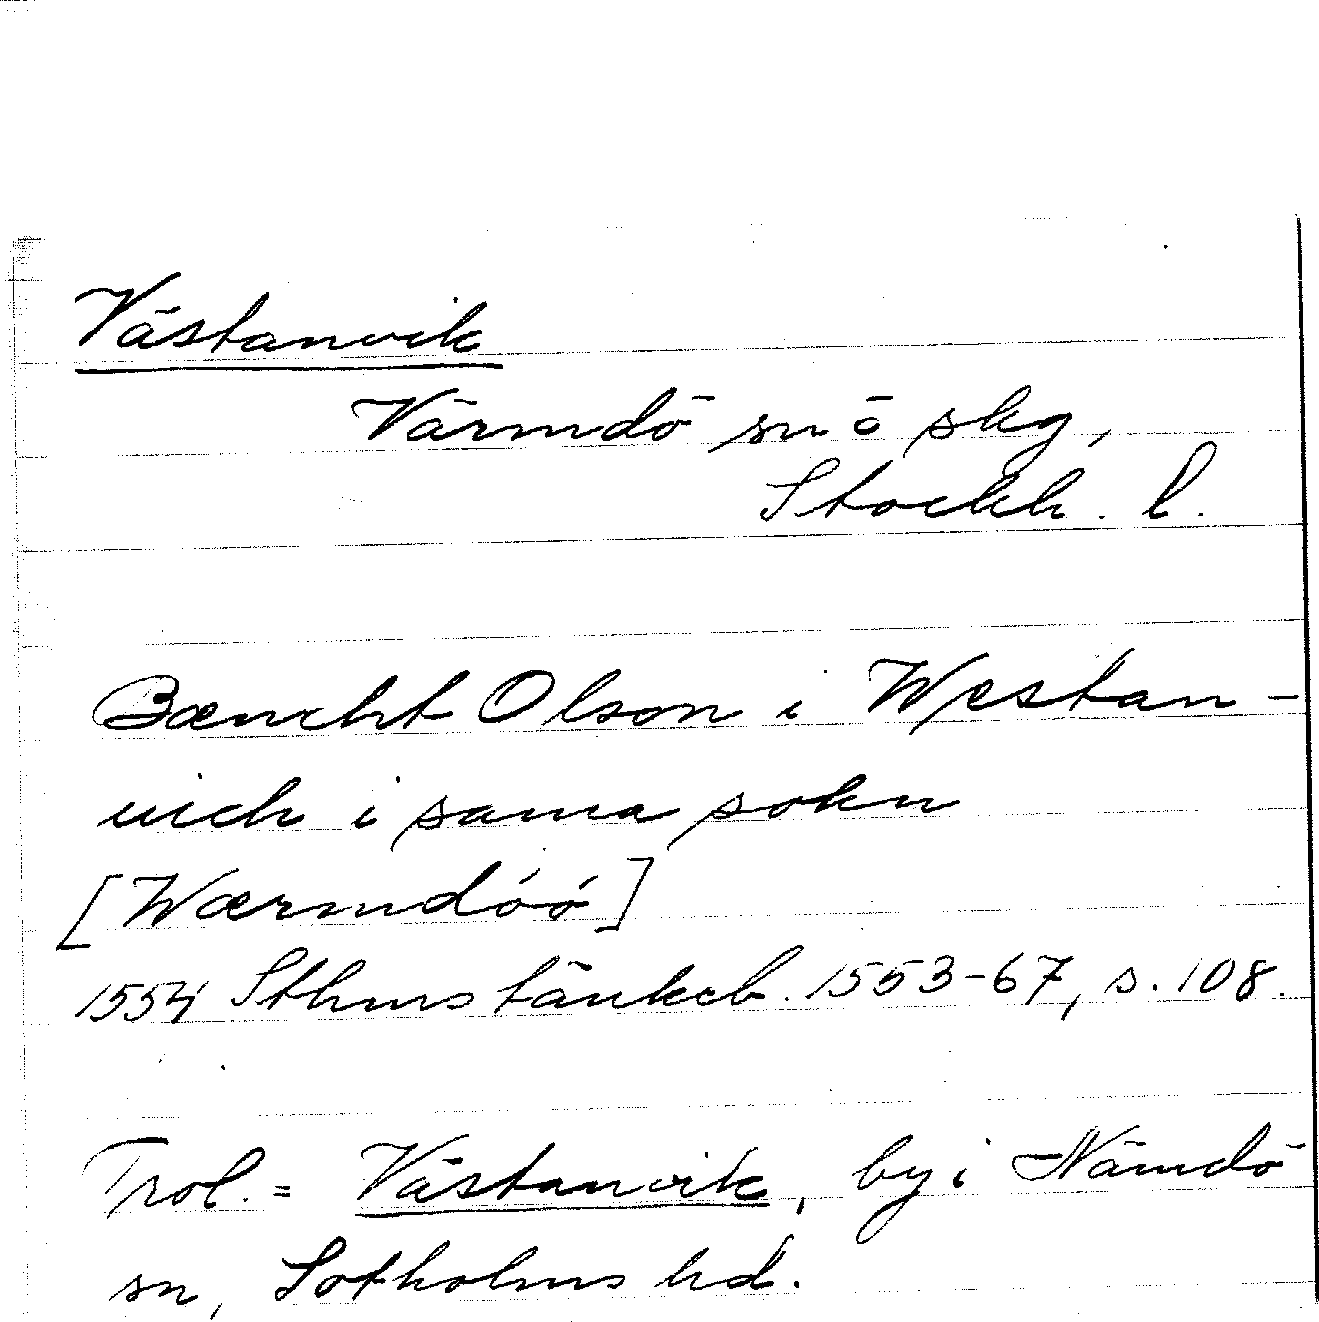 Västanvik
Värmdö sn o skg,
Stockh. l.
Bæncht Olson i Westan-
uich i sama sokn
[Wærmdóó]
1554 Sthms tänkeb. 1553-67, s. 108.
Trol. = Västanvik, by i Nämdö
sn, Sotholms hd.